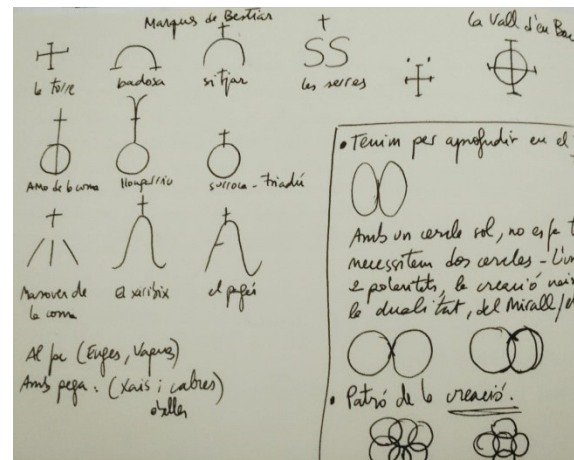 Marques de Bestiar
la Vall d'en
la torre badosa sitjar les serres
Amo de la coma surroca - triadú
Masover de la coma el xaribix el pagès
Al foc (Eugues, Vaques)
Amb pega: (Xais i cabres)
• Tenim per aprofundir en el
Amb un cercle sol, no es fa
necessitem dos cercles -
2 potentats, la creació
la dualitat, del Mirall/
• Patró de la creació.